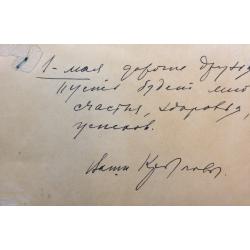 1-мая дорогие друзья
Пусть будет мно
счастья, здоровья,
успехов.
Ваши Крыловы.